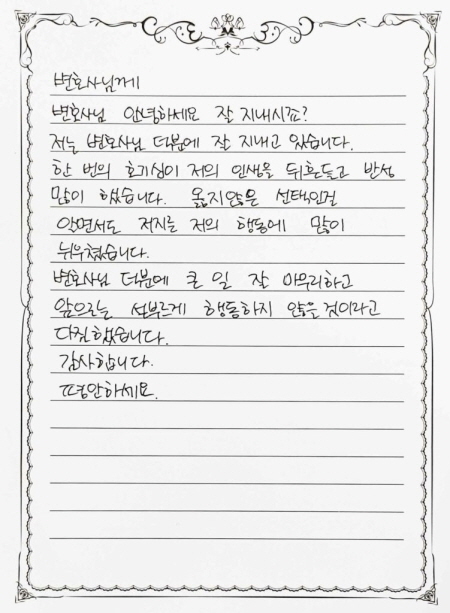 변호사님께
변호사님 안녕하세요 잘 지내시죠?
저는 변호사님 덕분에 잘 지내고 있습니다.
한 번의 호기심이 저의 인생을 뒤흔들고 반성
많이 했습니다. 옳지않은 선택인걸
알면서도 저지른 저의 행동에 많이
뉘우쳤습니다.
변호사님 덕분에 큰 일 잘 마무리하고
앞으로는 섣부르게 행동하지 않을 것이라고
다짐했습니다.
감사합니다.
평안하세요.